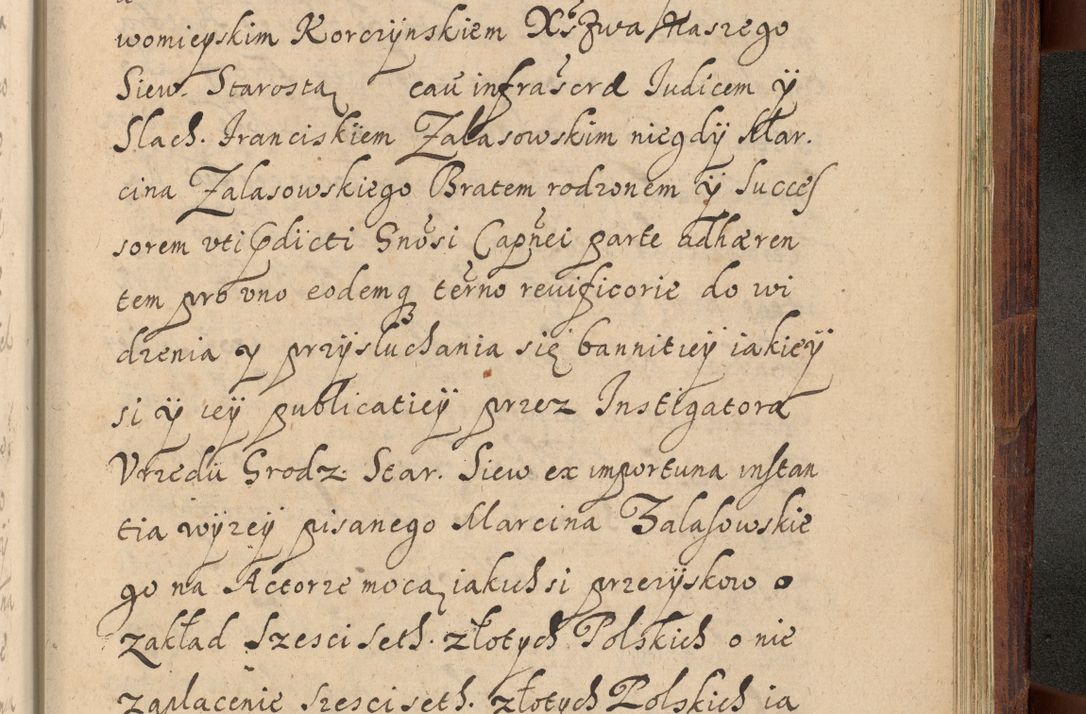 womieyskim Korczÿnskiem Xs̃zwa Naszego
Siew. Starostą caũ infrascrã Iudicem ÿ
Slach. Franciskiem Zalasowskim niegdÿ Mar.
cina Zalasowskiego Bratem rodzonem ÿ Succes
sorem vti Pdicti Gnõsi Capñei parte adhæren
tem pro vno eodemq̃ terño reuificorie do wi
dzenia y przÿsluchania się bannitieÿ iakieÿ
si ÿ ieÿ publicatieÿ przez Instigatora
Vrzedu Grodz. Star. Siew ex importuna instan
tia wÿzeÿ pisanego Marcina Zalasowskie
go na Actorze mocą iakichsi przezÿskow o
zakład Szesci seth. złotych Polskich o nie
zaplacenie szesci seth. złotÿch Polskich ia